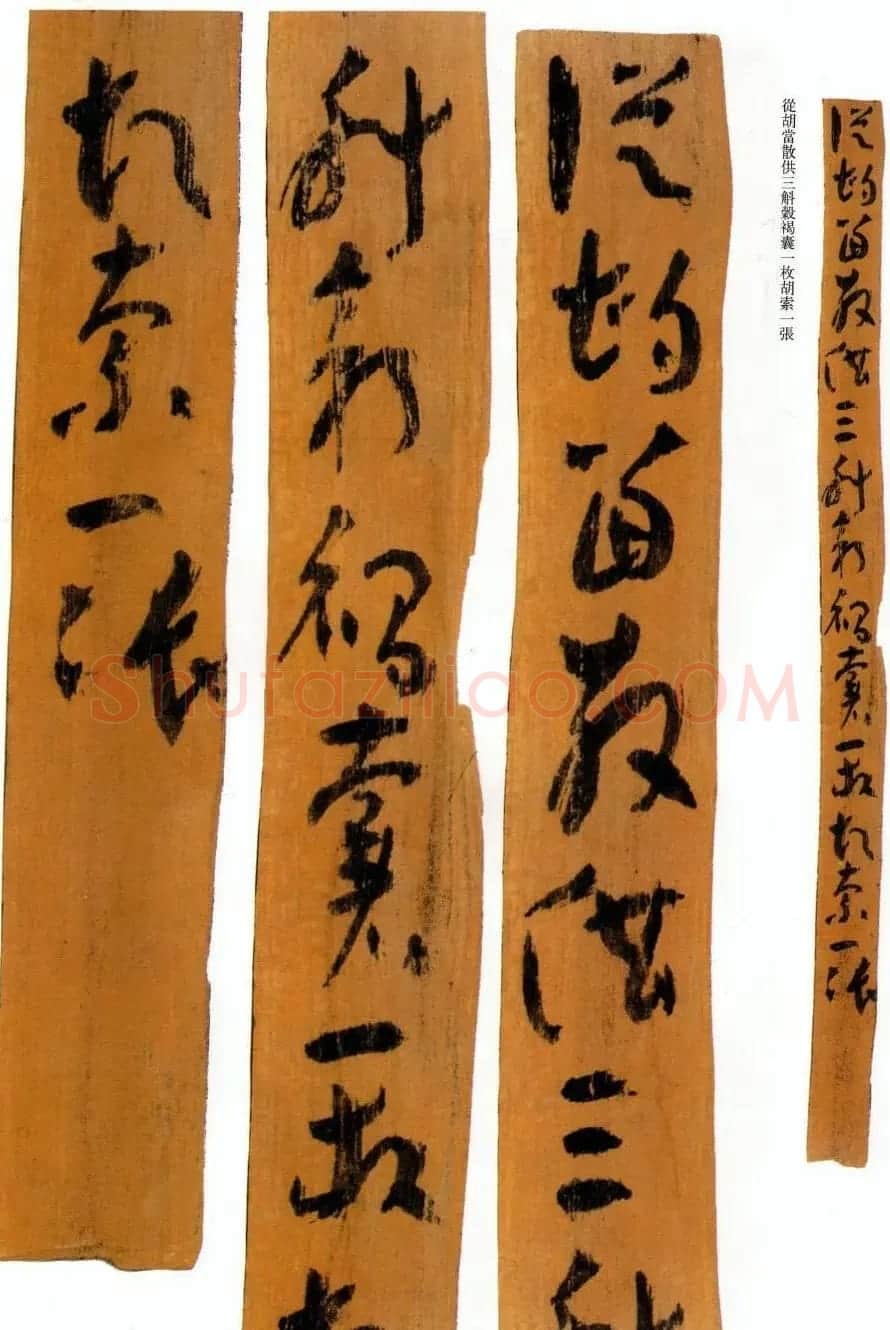 從胡當散供三斛穀褐囊一枚胡索一張
從胡當散供三斛穀褐囊一枚胡索一張
從胡當散供三斛
斛穀褐囊一枚胡
胡索一張
Shufaziliao.COM